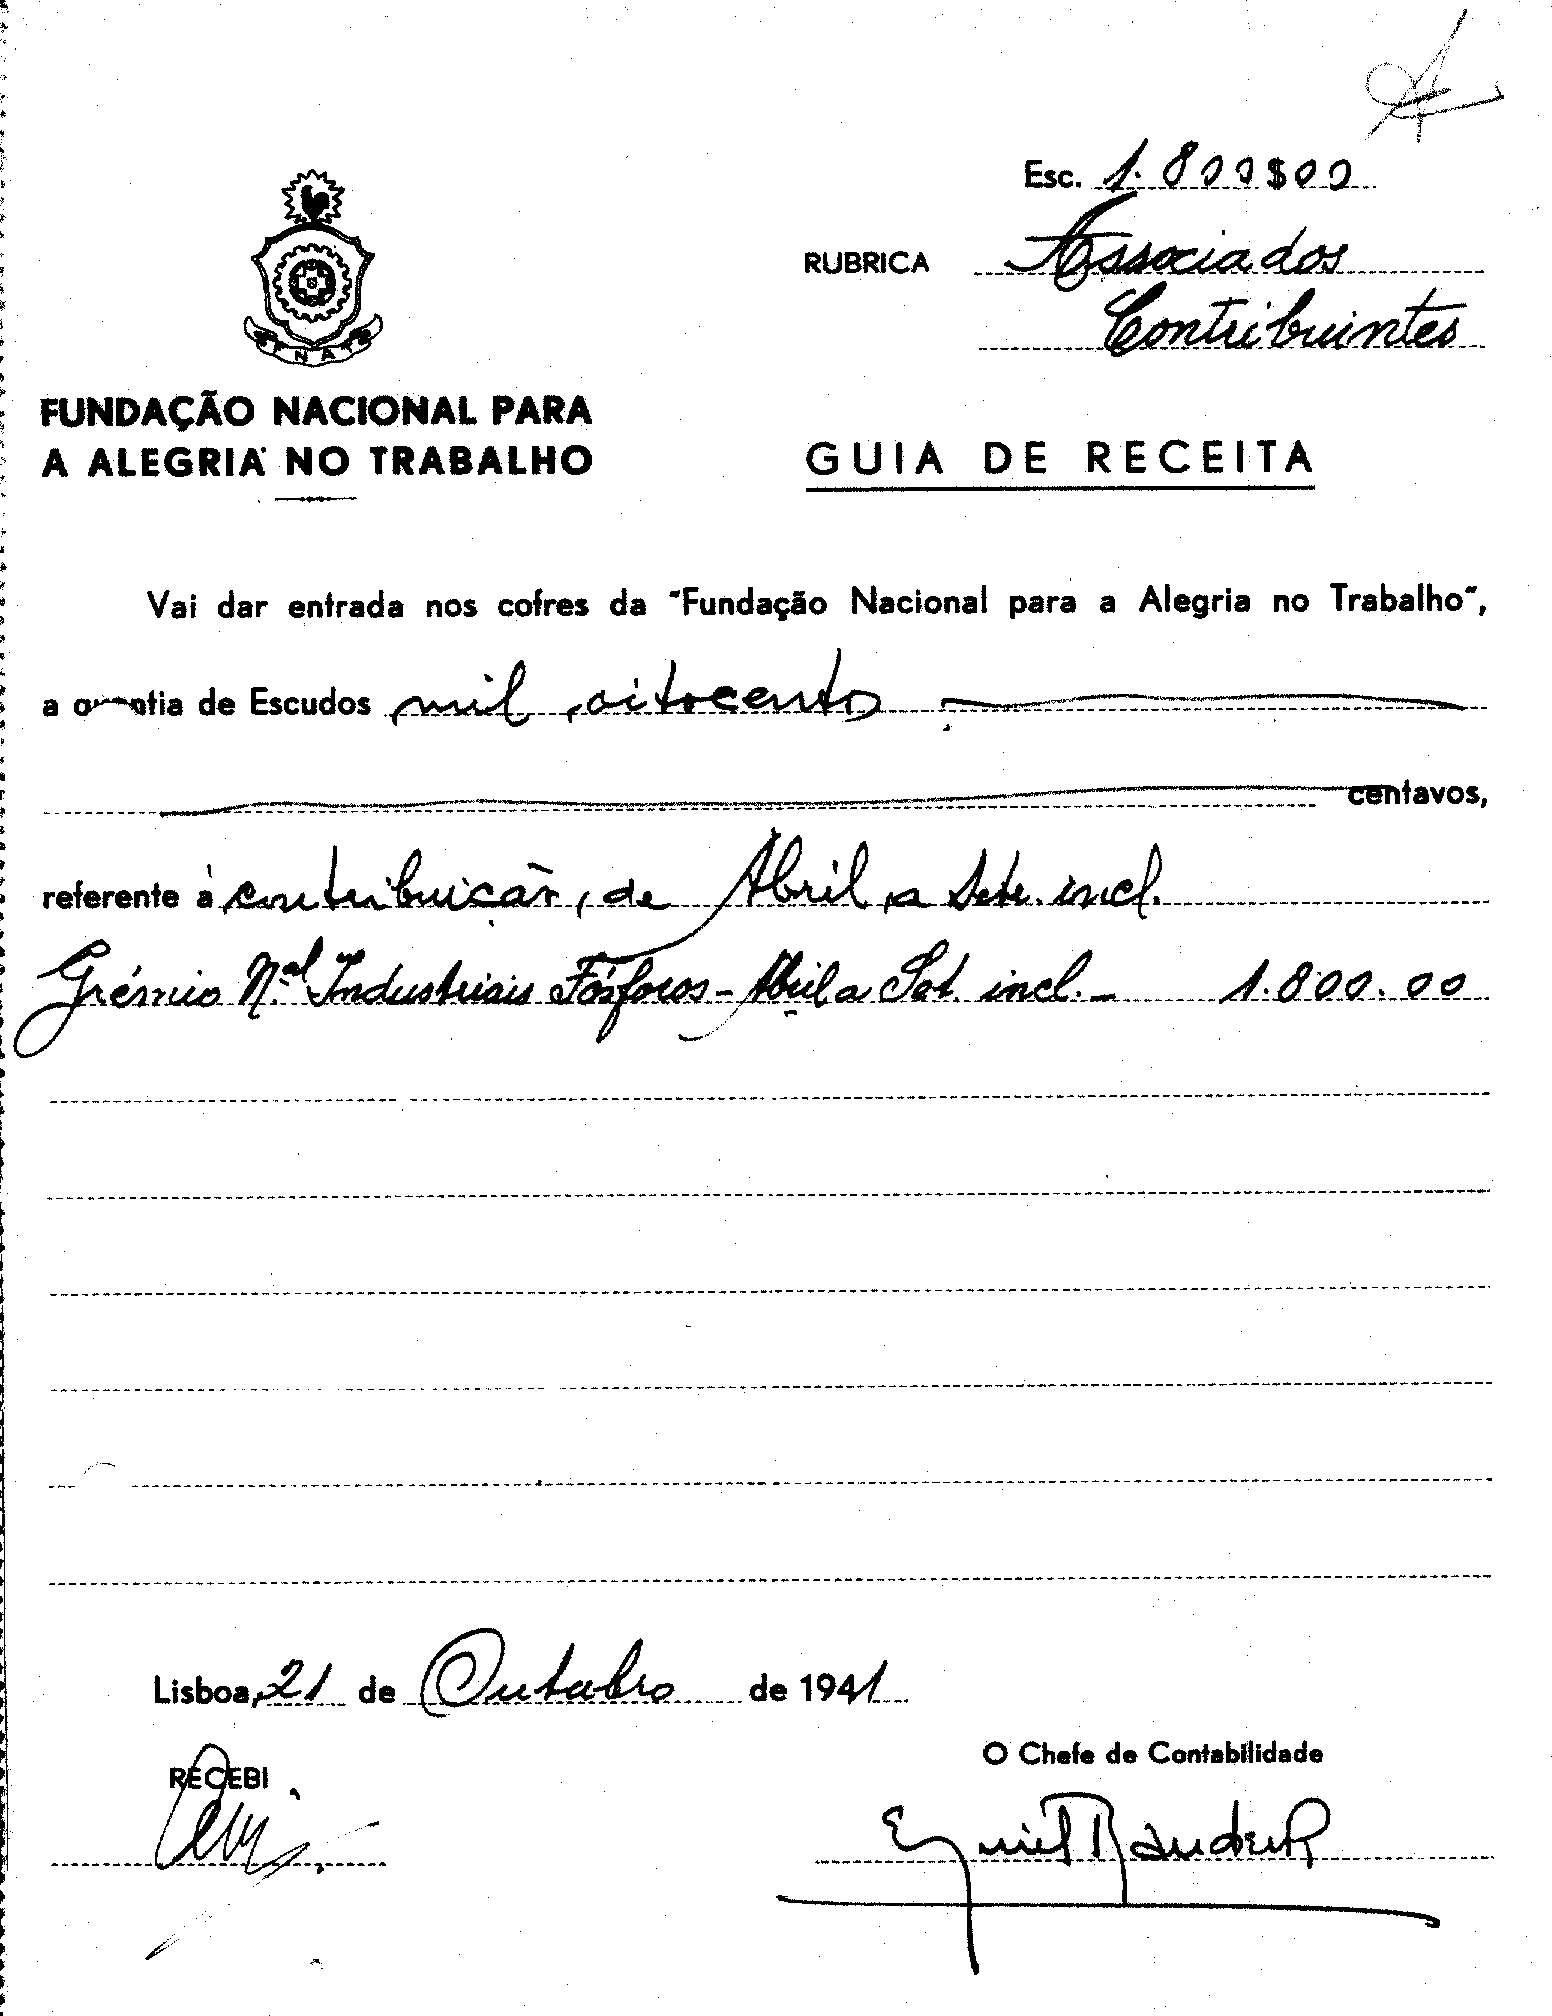 Esc. 1.800$00
RUBRICA Associados
Contribuintes
FNAT
FUNDAÇÃO NACIONAL PARA
A ALEGRIA NO TRABALHO
GUIA DE RECEITA
Vai dar entrada nos cofres da "Fundação Nacional para a Alegria no Trabalho",
a quantia de Escudos mil oitocentos
centavos,
referente à contribuição, de Abril a Sete. incl.
Grémio N.al Industriais Fósforos - Abril a Set. incl. - 1.800.00
Lisboa, 21 de Outubro de 1941
RECEBI
O Chefe de Contabilidade